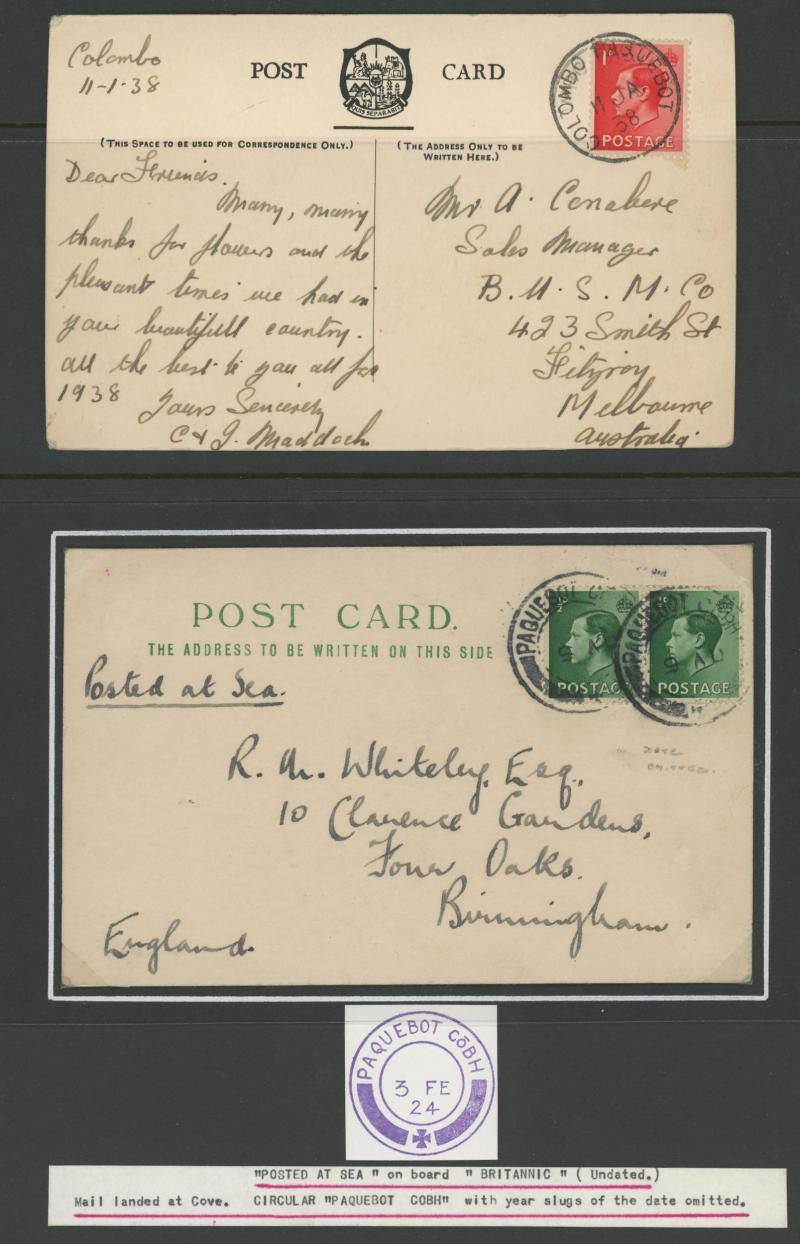 Colombo
11-1-38
POST CARD
QUIS SEPARABIT
1D
COLOMBO PAQUEBOT
11 JA
38
POSTAGE
(THIS SPACE TO BE USED FOR CORRESPONDENCE ONLY.)
(THE ADDRESS ONLY TO BE
WRITTEN HERE.)
Dear
Many, many
thanks for flowers and the
pleasant times we had in
your beautifull country.
all the best to you all for
1938
Yours Sencirely
C & J. Maddoch
Mr A. Conabere
Sales Manager
B. U. S. M. Co
423 Smith St
Fitzroy
Melbourne
Australia.
POST CARD.
THE ADDRESS TO BE WRITTEN ON THIS SIDE
Posted at Sea.
PAQUEBOT
9
POSTAGE
PAQUEBOT COBH
9
POSTAGE
R. M. Whiteley, Esq.,
10 Clarence Gardens,
Four Oaks.
Birmingham.
England.
PAQUEBOT CŌBH
3 FE
24
"POSTED AT SEA " on board " BRITANNIC " ( Undated.)
Mail landed at Cove. CIRCULAR "PAQUEBOT COBH" with year slugs of the date omitted.